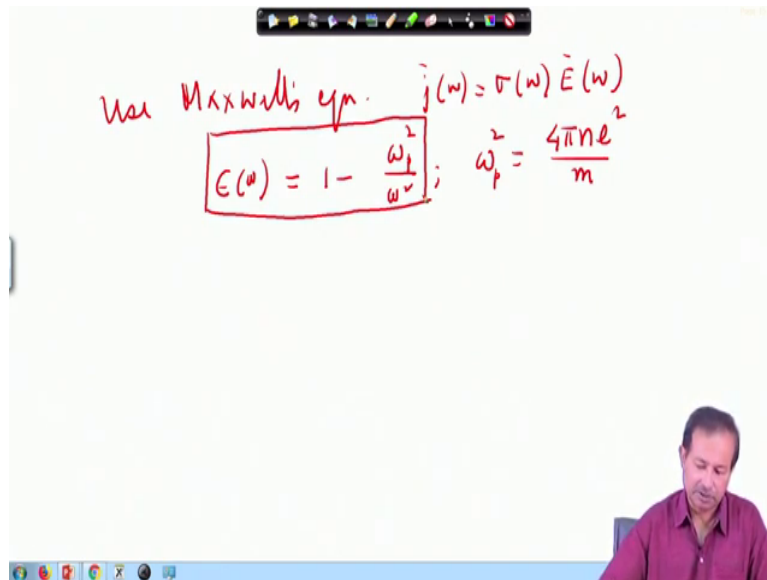 Use Maxwell's eqn. j̄(ω) = σ(ω) Ē(ω)
ϵ(ω) = 1 - ω_p^2 / ω^2 ; ω_p^2 = 4πne^2 / m